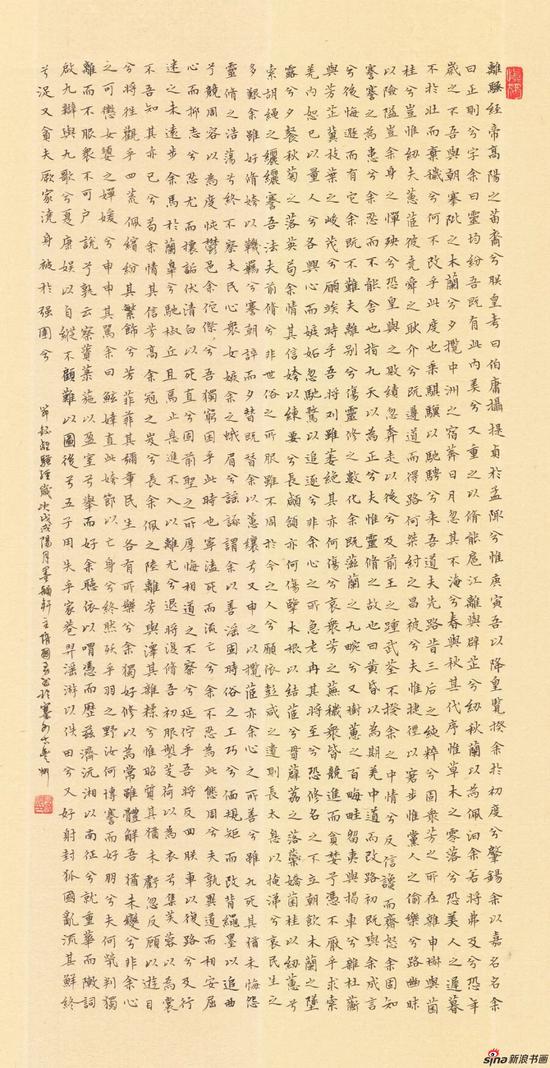 離騷經帝高陽之苗裔兮朕皇考曰伯庸攝提貞於孟陬兮惟庚寅吾以降皇覽揆余於初度兮肇錫余以嘉名名余
曰正則兮字余曰靈均紛吾既有此內美兮又重之以脩能扈江離與辟芷兮紉秋蘭以為佩汩余若將弗及兮恐年
歲之不吾與朝搴阰之木蘭兮夕攬中洲之宿莽日月忽其不淹兮春與秋其代序惟草木之零落兮恐美人之遲暮
不於壯而棄穢兮何不改乎此度也乘騏驥以馳騁兮来吾道夫先路昔三后之純粹兮固衆芳之所在雜申椒與菌
桂兮豈惟紉夫蕙茝彼堯舜之耿介兮既遵道而得路何桀紂之昌被兮夫惟捷徑以窘步惟黨人之偷樂兮路幽昧
以險隘豈余身之憚殃兮恐皇輿之敗績忽奔走以後兮及前王之踵武荃不揆余之中情兮反信讒而齌怒余固知
謇謇之為患兮余忍而不能舍也指九天以為正兮夫惟靈脩之故也曰黃昏以為期羌中道而改路初既與余成言
兮後悔遁而有它余既不難夫離別兮傷靈修之數化余既滋蘭之九畹兮又樹蕙之百畮畦留夷與揭車兮雜杜蘅
與芳芷冀枝葉之峻茂兮願竢時乎吾將刈雖萎絕其亦何傷兮哀衆芳之蕪穢衆皆競進而貪婪兮憑不厭乎求索
羌內恕己以量人兮各興心而嫉妬忽馳騖以追逐兮非余心之所急老冉其將至兮恐修名之不立朝飲木蘭之墜
露兮夕餐秋菊之落英苟余情其信姱以練要兮長顑頷亦何傷擥木根以結茝兮貫薜荔之落蘂矯菌桂以紉蕙兮
索胡繩之纚纚謇吾法夫前脩兮非世俗之所服雖不周於今之人兮願依彭咸之遺則長太息以掩涕兮哀民生之
多艱余雖好脩姱以鞿羈兮謇朝誶而夕替既替余以蕙纕兮又申之以攬茝亦余心之所善兮雖九死其猶未悔怨
靈脩之浩蕩兮終不察夫民心衆女嫉余之蛾眉兮謠諑謂余以善淫固時俗之工巧兮偭規矩而改背繩墨以追曲
兮競周容以為度忳鬱邑余侘傺兮吾獨窮困乎此時也寧溘死而流亡兮余不忍為此態周兮夫孰異道而相安屈
心而抑志兮忍尤而攘詬伏清白以死直兮固前聖之所厚悔相道之不察兮延佇乎吾將反回朕車以復路兮及行
迷之未遠步余馬於蘭皋兮馳椒丘且焉止息進不入以離尤兮退將復脩吾初服製芰荷以為衣兮集芙蓉以為裳
不吾知其亦已兮苟余情其信芳高余冠之岌兮長余佩之陸離芳與澤其雜糅兮惟昭質其猶未虧忽反顧以遊目
兮將往觀乎四荒佩繽紛其繁飾兮芳菲菲其彌章民生各有所樂兮余獨好修以為常雖體解吾猶未變兮非余心
之可懲女嬃之嬋媛兮申申其詈余曰鯀婞直此姱節以亡身兮終然殀乎羽之野汝何博謇而好羽兮夫何煢判獨
離而不服衆不可戶說兮孰云察薋菉葹以盈室兮舉而好余聽依以喟憑而歷茲濟沅湘以南征兮就重華而敶詞
啟九辯與九歌兮夏康娛以自縱不顧難以圖後兮五子用失乎家巷羿淫游以佚田兮又好射封狐國亂流其鮮終
兮浞又貪夫厥家澆身被於强圉兮
節錄離騷經歲次戊戌陽月墨緣軒主
sina新浪书画